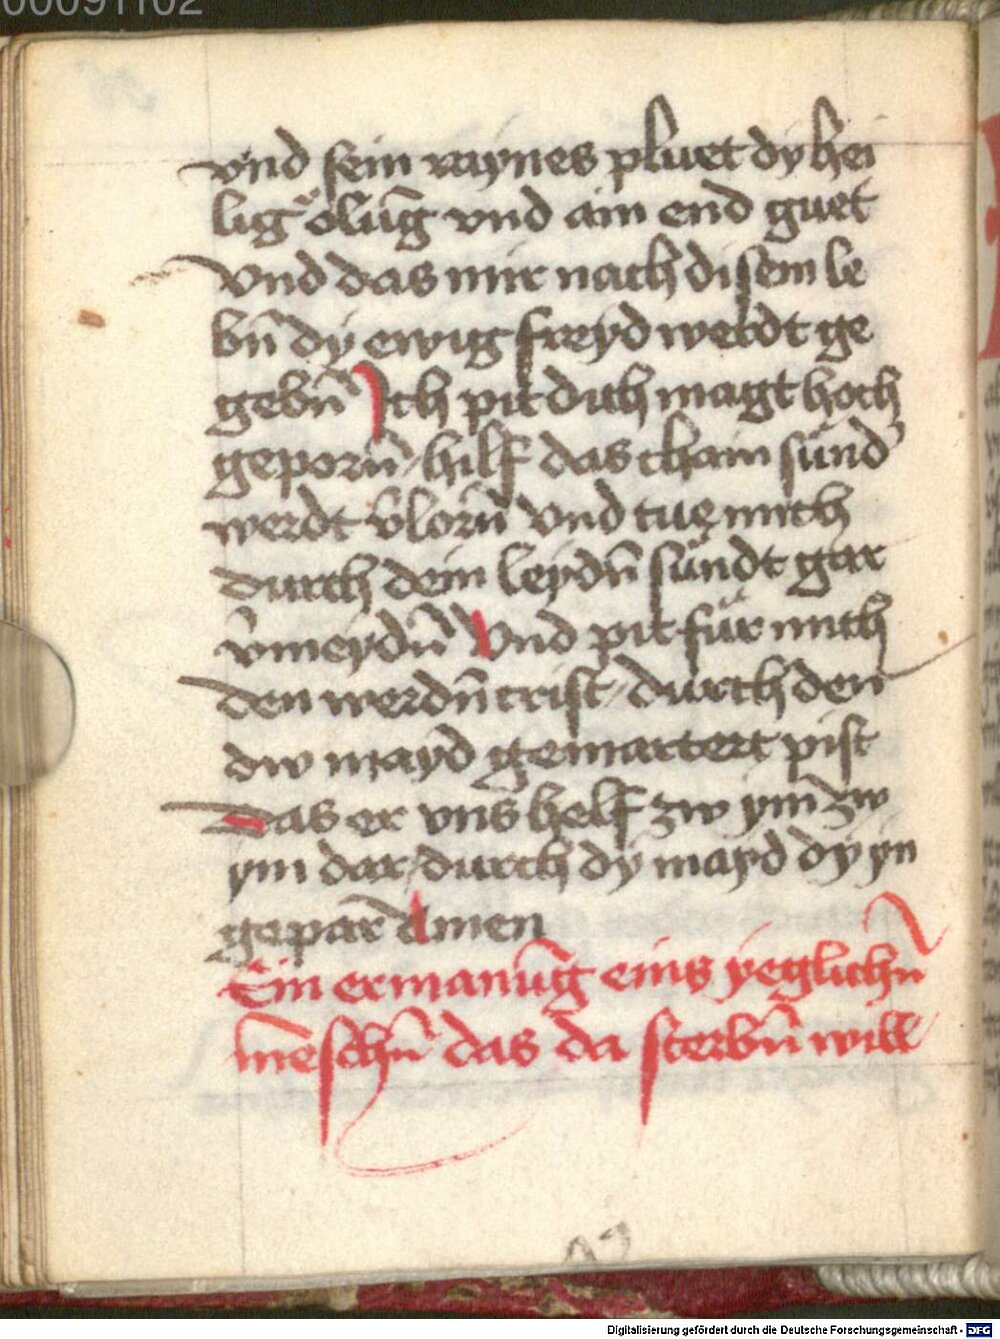 00091102
vnd sein raynes pluet dy hei
lig ölūg vnd ain end guet
Vnd das mir nach disem le
bn̄ dÿ ewig freyd werdt ge
gebn̄ Ich pit dich magt hoch
geporn̄ / hilf das cham sünd
werdt v̄lorn̄ vnd tue mich
durch dein leydn̄ sündt gar
v̄meydn̄ Vnd pit für mich
den werdn̄ crist / durch den
dw mayd gemartert pist
Das er vns helf zw ym zw
ym dar / durch dÿ mayd dy yn
gepar Amen
Ein ermanūg eins yeglichn̄
mēschn̄ das da sterbn̄ will
Digitalisierung gefördert durch die Deutsche Forschungsgemeinschaft - DFG